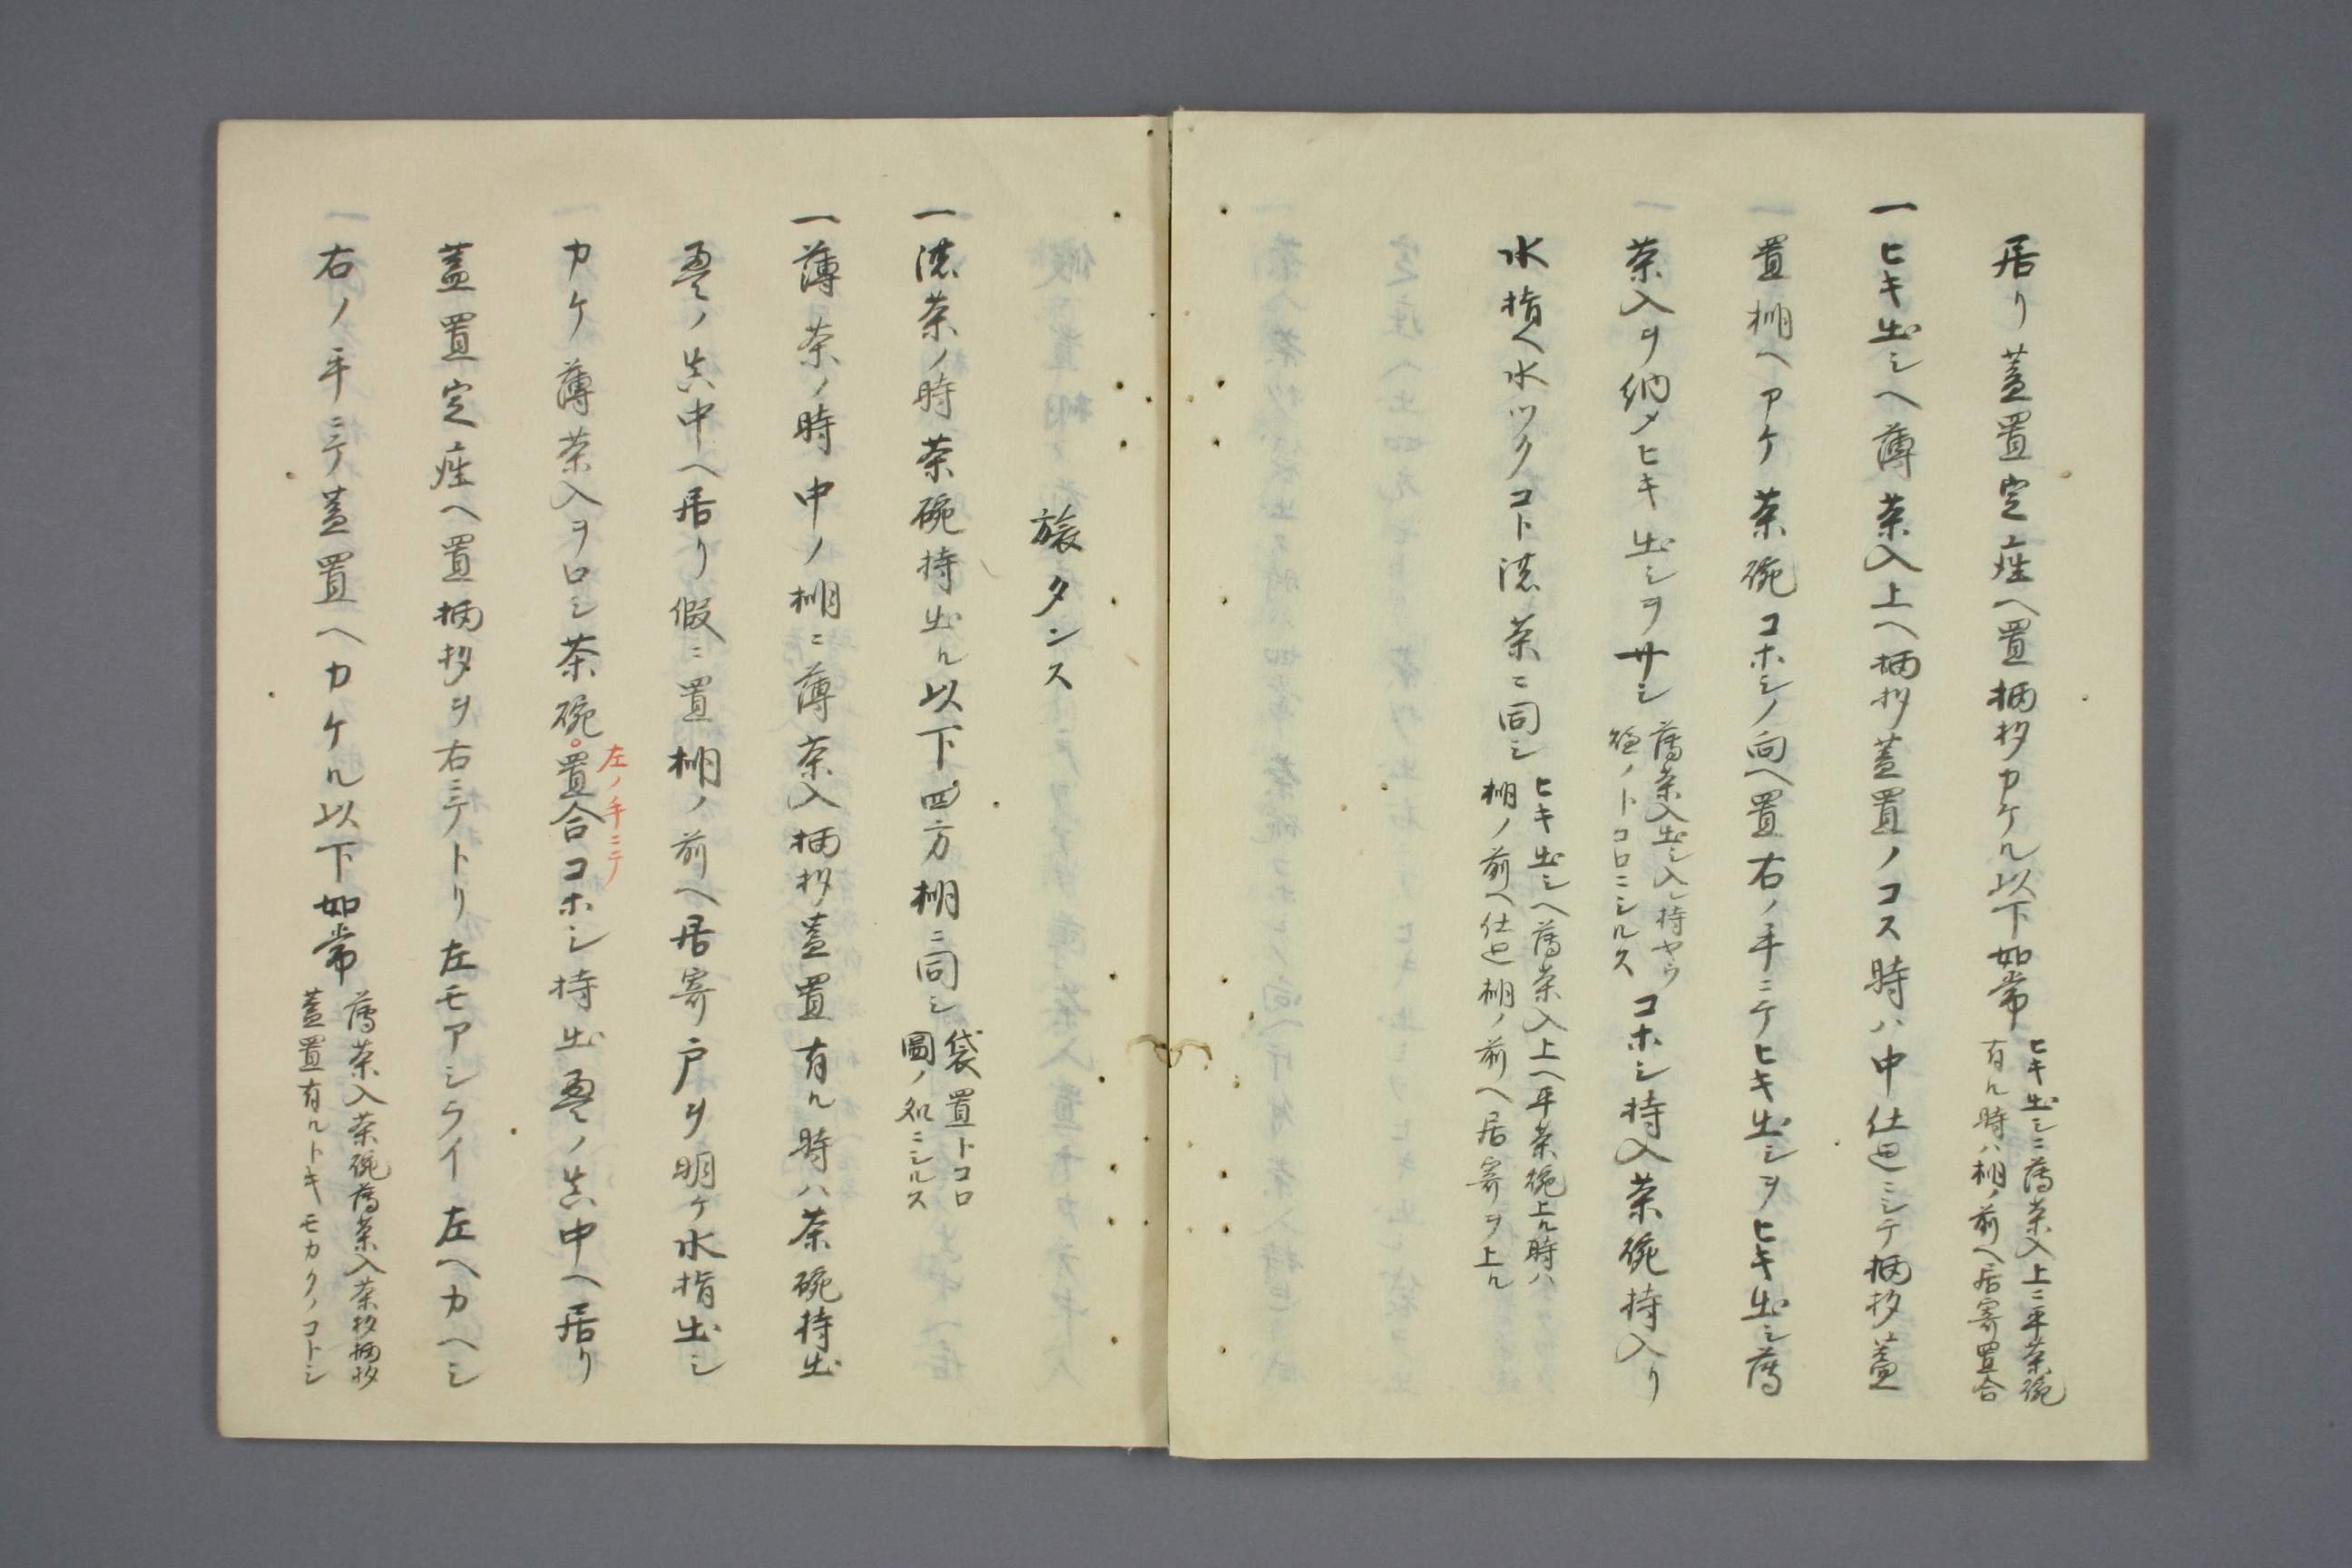 居リ蓋置定座ヘ置柄杓カケル以下如常
ヒキ出シニ薄茶入上ニ平茶碗
有ル時ハ棚ノ前ヘ居寄置合
一ヒキ出シヘ薄茶入上ヘ柄杓蓋置ノコス時ハ中仕廻ニシテ柄杓蓋
置棚ヘアケ茶碗コホシノ向ヘ置右ノ手ニテヒキ出シヲヒキ出シ薄
茶入ヲ納メヒキ出シヲサシ
薄茶入出シ入レ持ヤウ
ノトコロニシルス
コホシ持入茶碗持入リ
水指ヘ水ツクコト濃茶ニ同シ
ヒキ出シヘ薄茶入上ヘ平茶碗上ル時ハ
棚ノ前ヘ仕廻棚ノ前ヘ居寄ヲ上ル
旅タンス
一濃茶ノ時茶碗持出ル以下四方棚ニ同シ
袋置トコロ
圖ノ処ニシルス
一薄茶ノ時中ノ棚ニ薄茶入柄杓蓋置有ル時ハ茶碗持出
疊ノ真中ヘ居リ假ニ置棚ノ前ヘ居寄戸ヲ明ケ水指出シ
カケ薄茶入ヲロシ茶碗○置合コホシ持出疊ノ真中ヘ居リ
左ノ手ニテ
蓋置定座ヘ置柄杓ヲ右ニテトリ左モアシライ左ヘカヘシ
右ノ手ニテ蓋置ヘカケル以下如常
薄茶入茶碗薄茶入茶杓柄杓
蓋置有ルトキモカクノコトシ